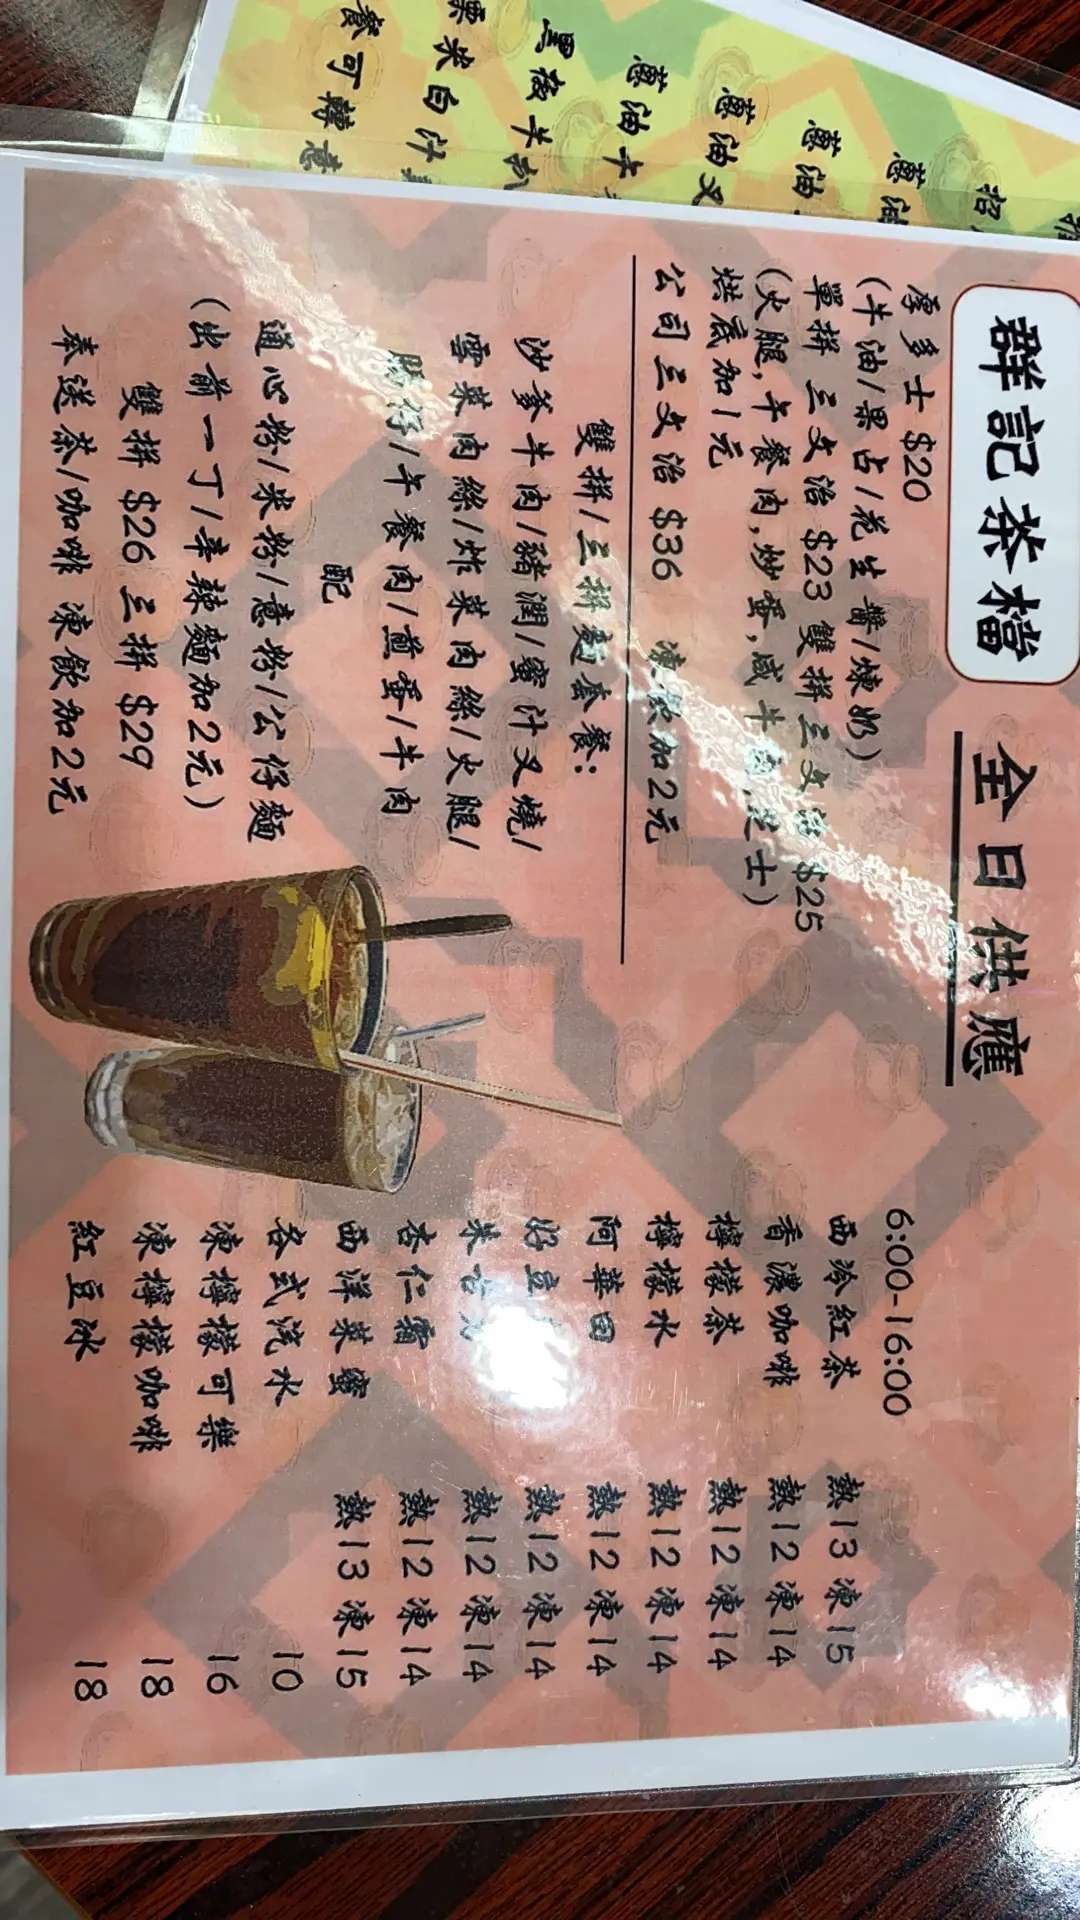 群記茶檔
全日供應
厚多士 $20
(牛油/果占/花生醬/煉奶)
單拼 三文治 $23 雙拼三文治 $25
(火腿,午餐肉,炒蛋,咸牛肉,芝士)
烘底加1元
公司三文治 $36 凍飲加2元
雙拼/三拼麵套餐:
沙爹牛肉/豬潤/蜜汁叉燒/
雪菜肉絲/炸菜肉絲/火腿/
腸仔/午餐肉/煎蛋/牛肉
配
通心粉/米粉/意粉/公仔麵
(出前一丁/辛辣麵加2元)
雙拼 $26 三拼 $29
奉送 茶/咖啡 凍飲加2元
6:00-16:00
西冷紅茶 熱13 凍15
香濃咖啡 熱12 凍14
檸檬茶 熱12 凍14
檸檬水 熱12 凍14
阿華田 熱12 凍14
好立 熱12 凍14
熱12 凍14
杏仁霜 熱12 凍14
西洋菜蜜 熱13 凍15
各式汽水 10
凍檸檬可樂 16
凍檸檬咖啡 18
紅豆冰 18
招
蔥油
蔥油
蔥油叉
蔥油牛
粟米白汁
餐可轉意